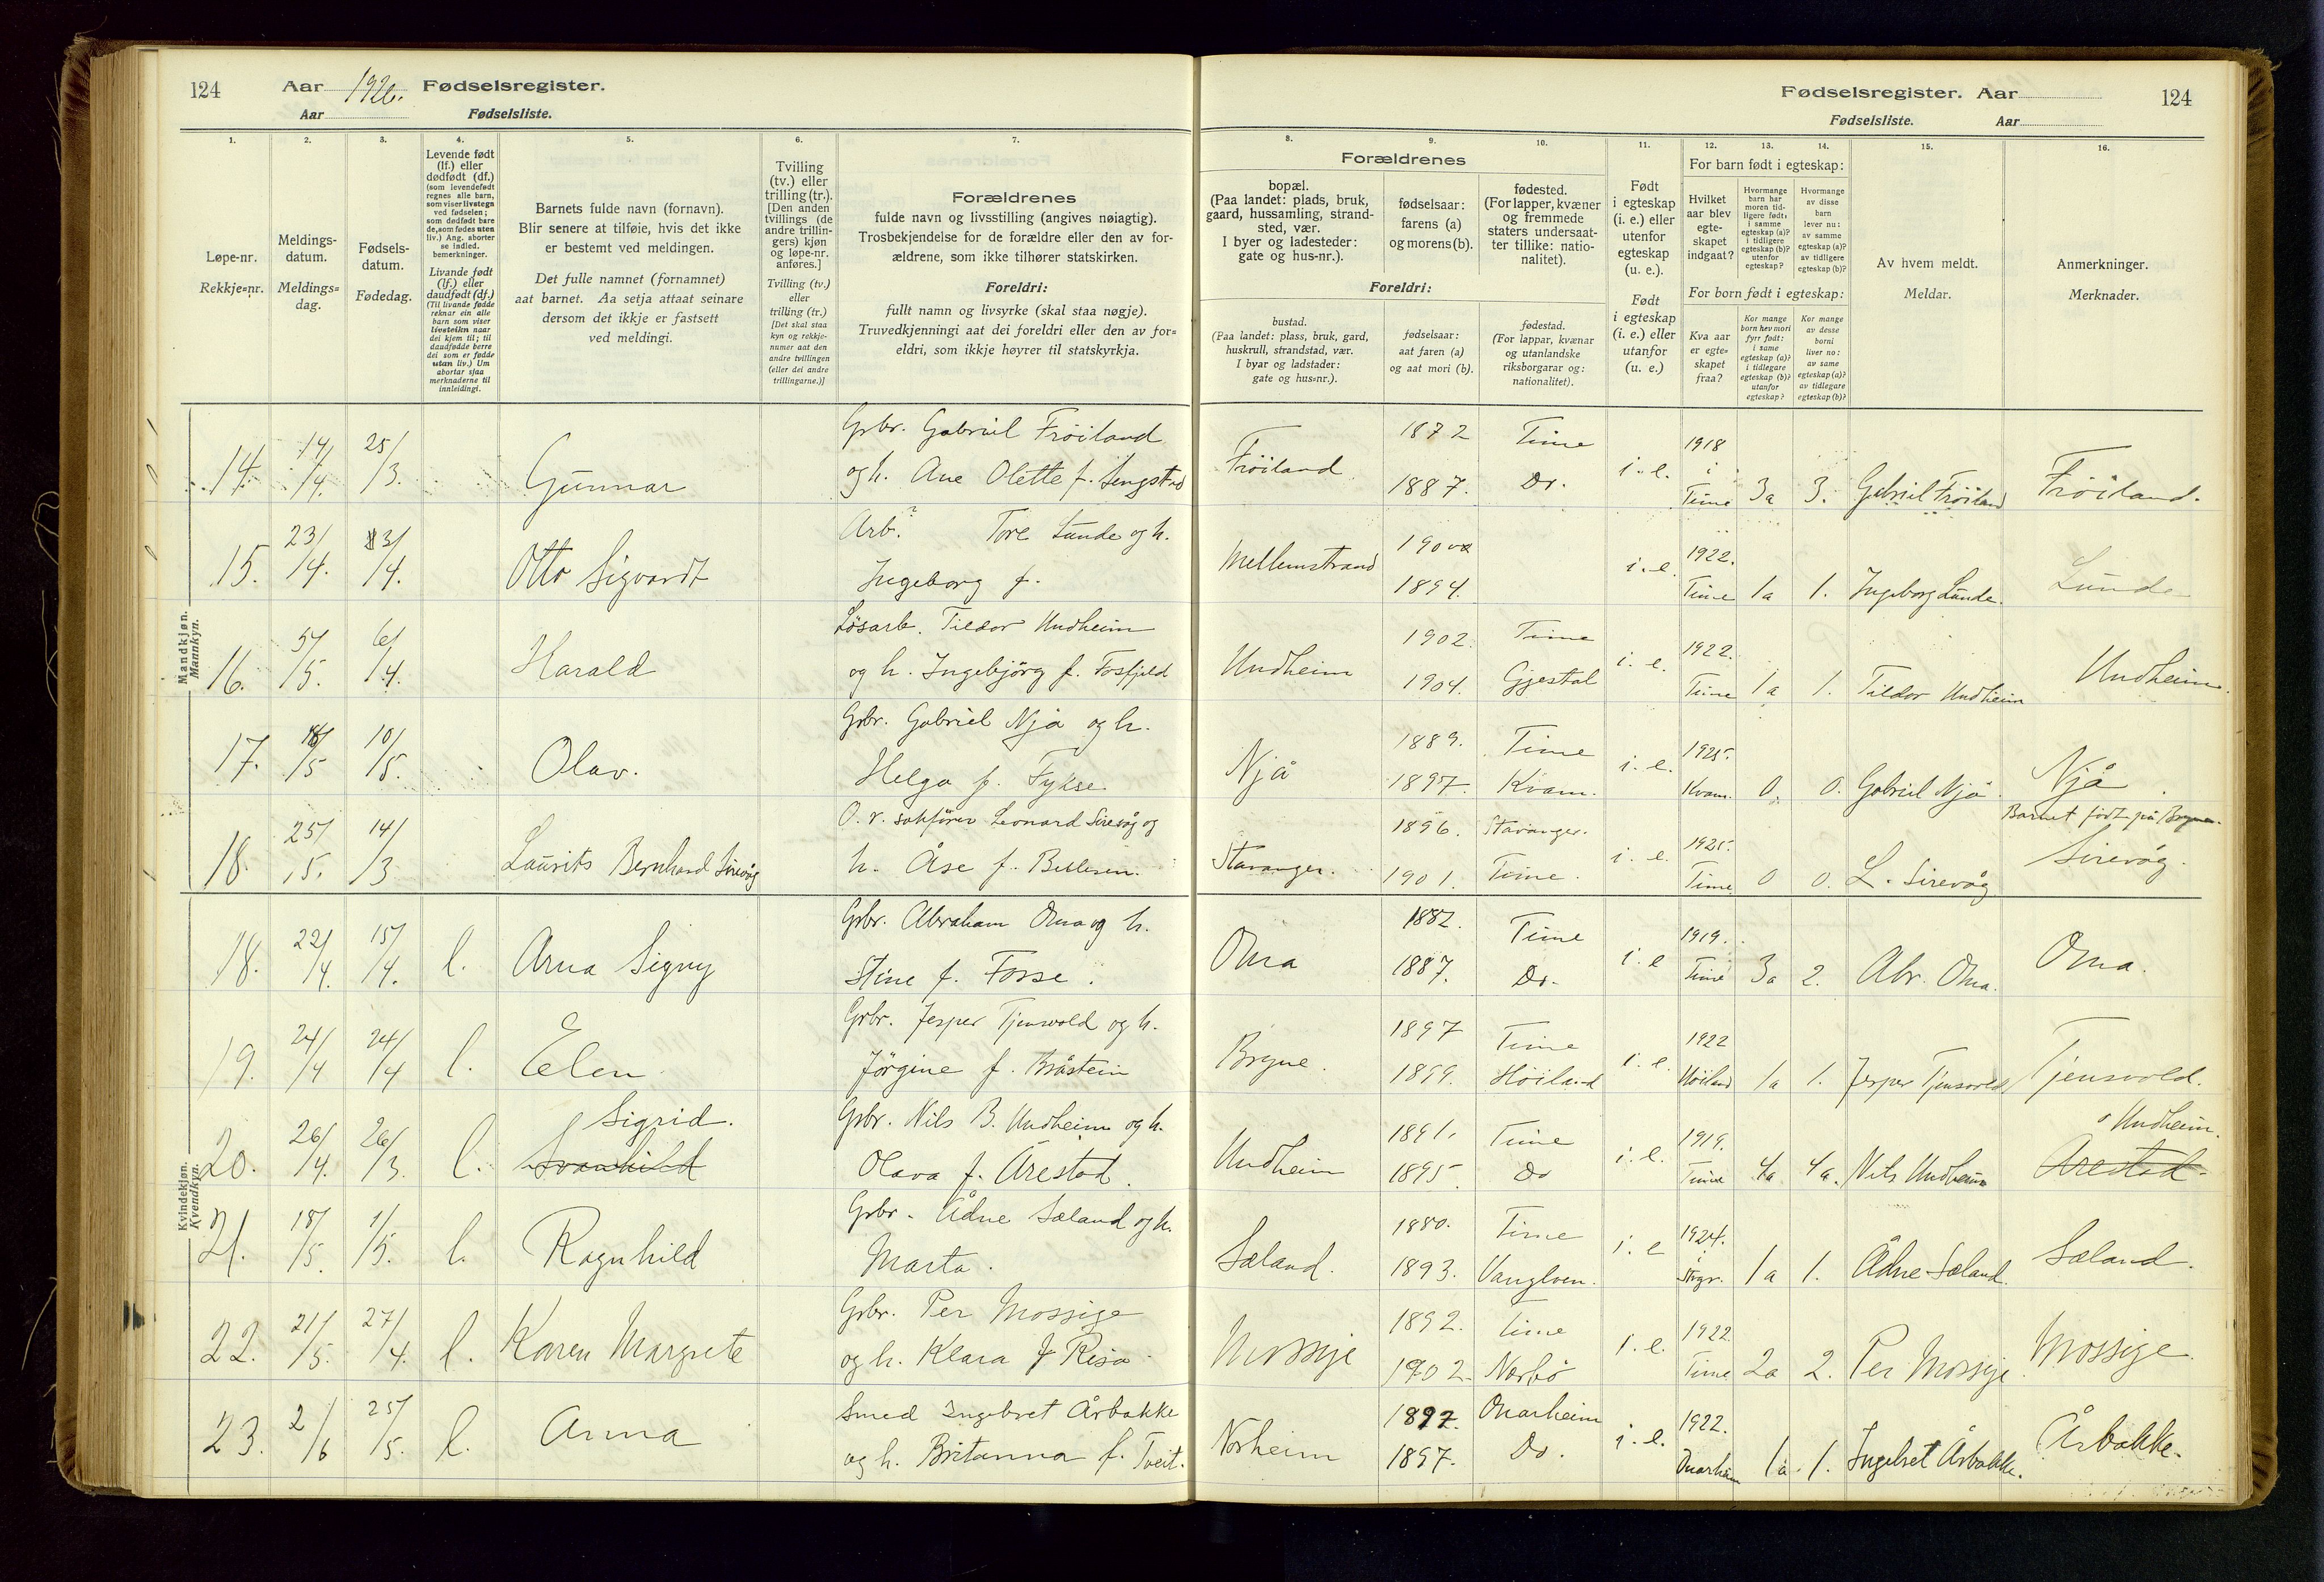 124 Aar 1926. Fødselsregister.
Aar Fødselsliste.
Fødselsregister. Aar 124
Fødselsliste. Aar
1. 2. 3. 4. 5. 6. 7. 8. 9. 10. 11. 12. 13. 14. 15. 16.
Løpe-nr.
Rekkje-nr.
Meldings-
datum.
Meldings-
dag.
Fødsels-
datum.
Fødedag.
Levende født
(lf.) eller
dødfødt (df.)
(som levendefødt
regnes alle barn,
som viser livstegn
ved fødselen;
som dødfødt bare
de, som fødes uten
liv.) Ang. aborter
se indled.
bemerkninger.
Livande født
(lf.) eller
daudfødt (df.)
(Til livande fødde
reknar ein alle
barn som viser
livsteikn naar
dei kjem til; til
daudfødde berre
dei som er fødde
utan liv.) Um
abortar sjaa
merknaderne til
innleidingi.
Barnets fulde navn (fornavn).
Blir senere at tilføie, hvis det ikke
er bestemt ved meldingen.
Det fulle namnet (fornamnet)
aat barnet. Aa setja attaat seinare
dersom det ikkje er fastsett
ved meldingi.
Tvilling
(tv.) eller
trilling (tr.).
[Den anden
tvillings (de
andre trillin-
gers) kjøn
og løpe-nr.
anføres.]
Tvilling (tv.)
eller
trilling (tr.)
[Det skal staa
kyn og rekkje-
numer aat den
andre tvillingen
(eller dei andre
trillingarne.)]
Forældrenes
fulde navn og livsstilling (angives nøiagtig).
Trosbekjendelse for de forældre eller den av for-
ældrene, som ikke tilhører statskirken.
Foreldri:
fullt namn og livsyrke (skal staa nøgje).
Truvedkjenningi aat dei foreldri eller den av for-
eldri, som ikkje høyrer til statskyrkja.
Forældrenes
bopæl.
(Paa landet: plads, bruk,
gaard, hussamling, strand-
sted, vær.
I byer og ladesteder:
gate og hus-nr.).
fødselsaar:
farens (a)
og morens (b).
fødested.
(For lapper, kvæner
og fremmede
staters undersaat-
ter tillike: natio-
nalitet).
Foreldri:
bustad.
(Paa landet: plass, bruk, gard,
huskrull, strandstad, vær.
I byar og ladstader:
gate og hus-nr.).
fødselsaar:
aat faren (a)
og aat mori (b).
fødestad.
(For lappar, kvænar
og utanlandske
riksborgarar og:
nationalitet).
Født
i egteskap
(i. e.) eller
utenfor
egteskap
(u. e.).
Født
i egteskap
(i. e.) eller
utanfor
(u. e.)
For barn født i egteskap:
Hvilket
aar blev
egte-
skapet
indgaat?
Hvormange
barn har
moren tid-
ligere født:
i samme
egteskap (a)?
i tidligere
egteskap (b)?
utenfor
egteskap?
Hvormange
av disse
barn
lever nu:
av samme
egteskap (a)?
av tidligere
egteskap (b)?
For born født i egteskap:
Kva aar
er egte-
skapet
fraa?
Kor mange
born hev mori
fyrr født:
i same
egteskap (a)?
i tidlegare
egteskap (b)?
utanfor
egteskap?
Kor mange
av desse
borni
liver no:
av same
egteskap (a)?
av tidlegare
egteskap (b)?
Av hvem meldt.
Meldar.
Anmerkninger.
Merknader.
Mandkjøn.
Mannkyn.
14. 14/4. 25/3. Gunnar Gbr. Gabriel Frøiland Frøiland 1872 Time i. e. 1918 i Time 3a 3. Gabriel Frøiland Frøiland.
og h. Ane Olette f. 1887. Do.
15. 23/4. 3/4. Otto Sigvardt Arb.? Tore Lunde og h. Mellemstrand i. e. 1922. Time 1a 1. Ingeborg Lunde. Lunde
Ingeborg f. 1894.
16. 5/5. 6/4. Harald Løsarb. Tildor Undheim Undheim 1902. Time i. e. 1922. Time 1a 1. Tildor Undheim Undheim.
og h. Ingebjörg f. Fosfjeld 1904. Gjestal
17. 18/5 10/5. Olav. Gbr. Gabriel Njå og h. Njå 1889. Time i. e. 1925. Kvam. 0. 0. Gabriel Njå. Njå.
Helga f. Fykse. 1897. Kvam.
18. 25/5. 14/3 Laurits Bernhard Sirevåg O. r. sakfører Leonard Sirevåg og Stavanger. 1896. Stavanger. i. e. 1925. Time 0 0. L. Sirevåg Barnet født på Bryne. Sirevåg.
h. Åse f. 1901. Time.
Kvindekjøn.
Kvendkyn.
18. 22/4. 15/4. l. Arna Signy Gbr. Abraham Oma og h. Oma 1882. Time i. e 1919. Time 3a 2. Abr. Oma. Oma.
Stine f. Fosse. 1887. Do.
19. 24/4 24/4 l. Elen Gbr. Jesper Tjensvold og h. Bryne. 1897 Time i. e. 1922 Høiland 1a 1. Jesper Tjensvold Tjensvold.
Jörgine f. Bråstein 1899. Høiland
20. 26/4. 26/3. l. Sigrid. Svanhild Gbr. Nils B. Undheim og h. Undheim 1891. Time i. e. 1919. Time 4a 4a. Nils Undheim Undheim. Årestad
Olava f. Årestad. 1895. Do
21. 18/5. 1/5. l. Ragnhild Gbr. Ådne Sæland og h. Sæland. 1880. Time i. e 1924. i Stvgr. 1a 1. Ådne Sæland. Sæland.
Marta. 1893.
22. 21/5. 27/4. l. Karen Margrete Gbr. Per Mossige Mossige 1892. Time i. e. 1922. Time 2a 2. Per Mossige. Mossige.
og h. Klara f Risa. 1902. Nærbö
23. 2/6 25/5. l. Anna Smed Ingebret Årbakke Norheim 1897. Onarheim i. e. 1922. Onarheim 1a. 1. Ingebret Årbakke. Årbakke.
og h. Britanna f. Tveit. 1897. Do.